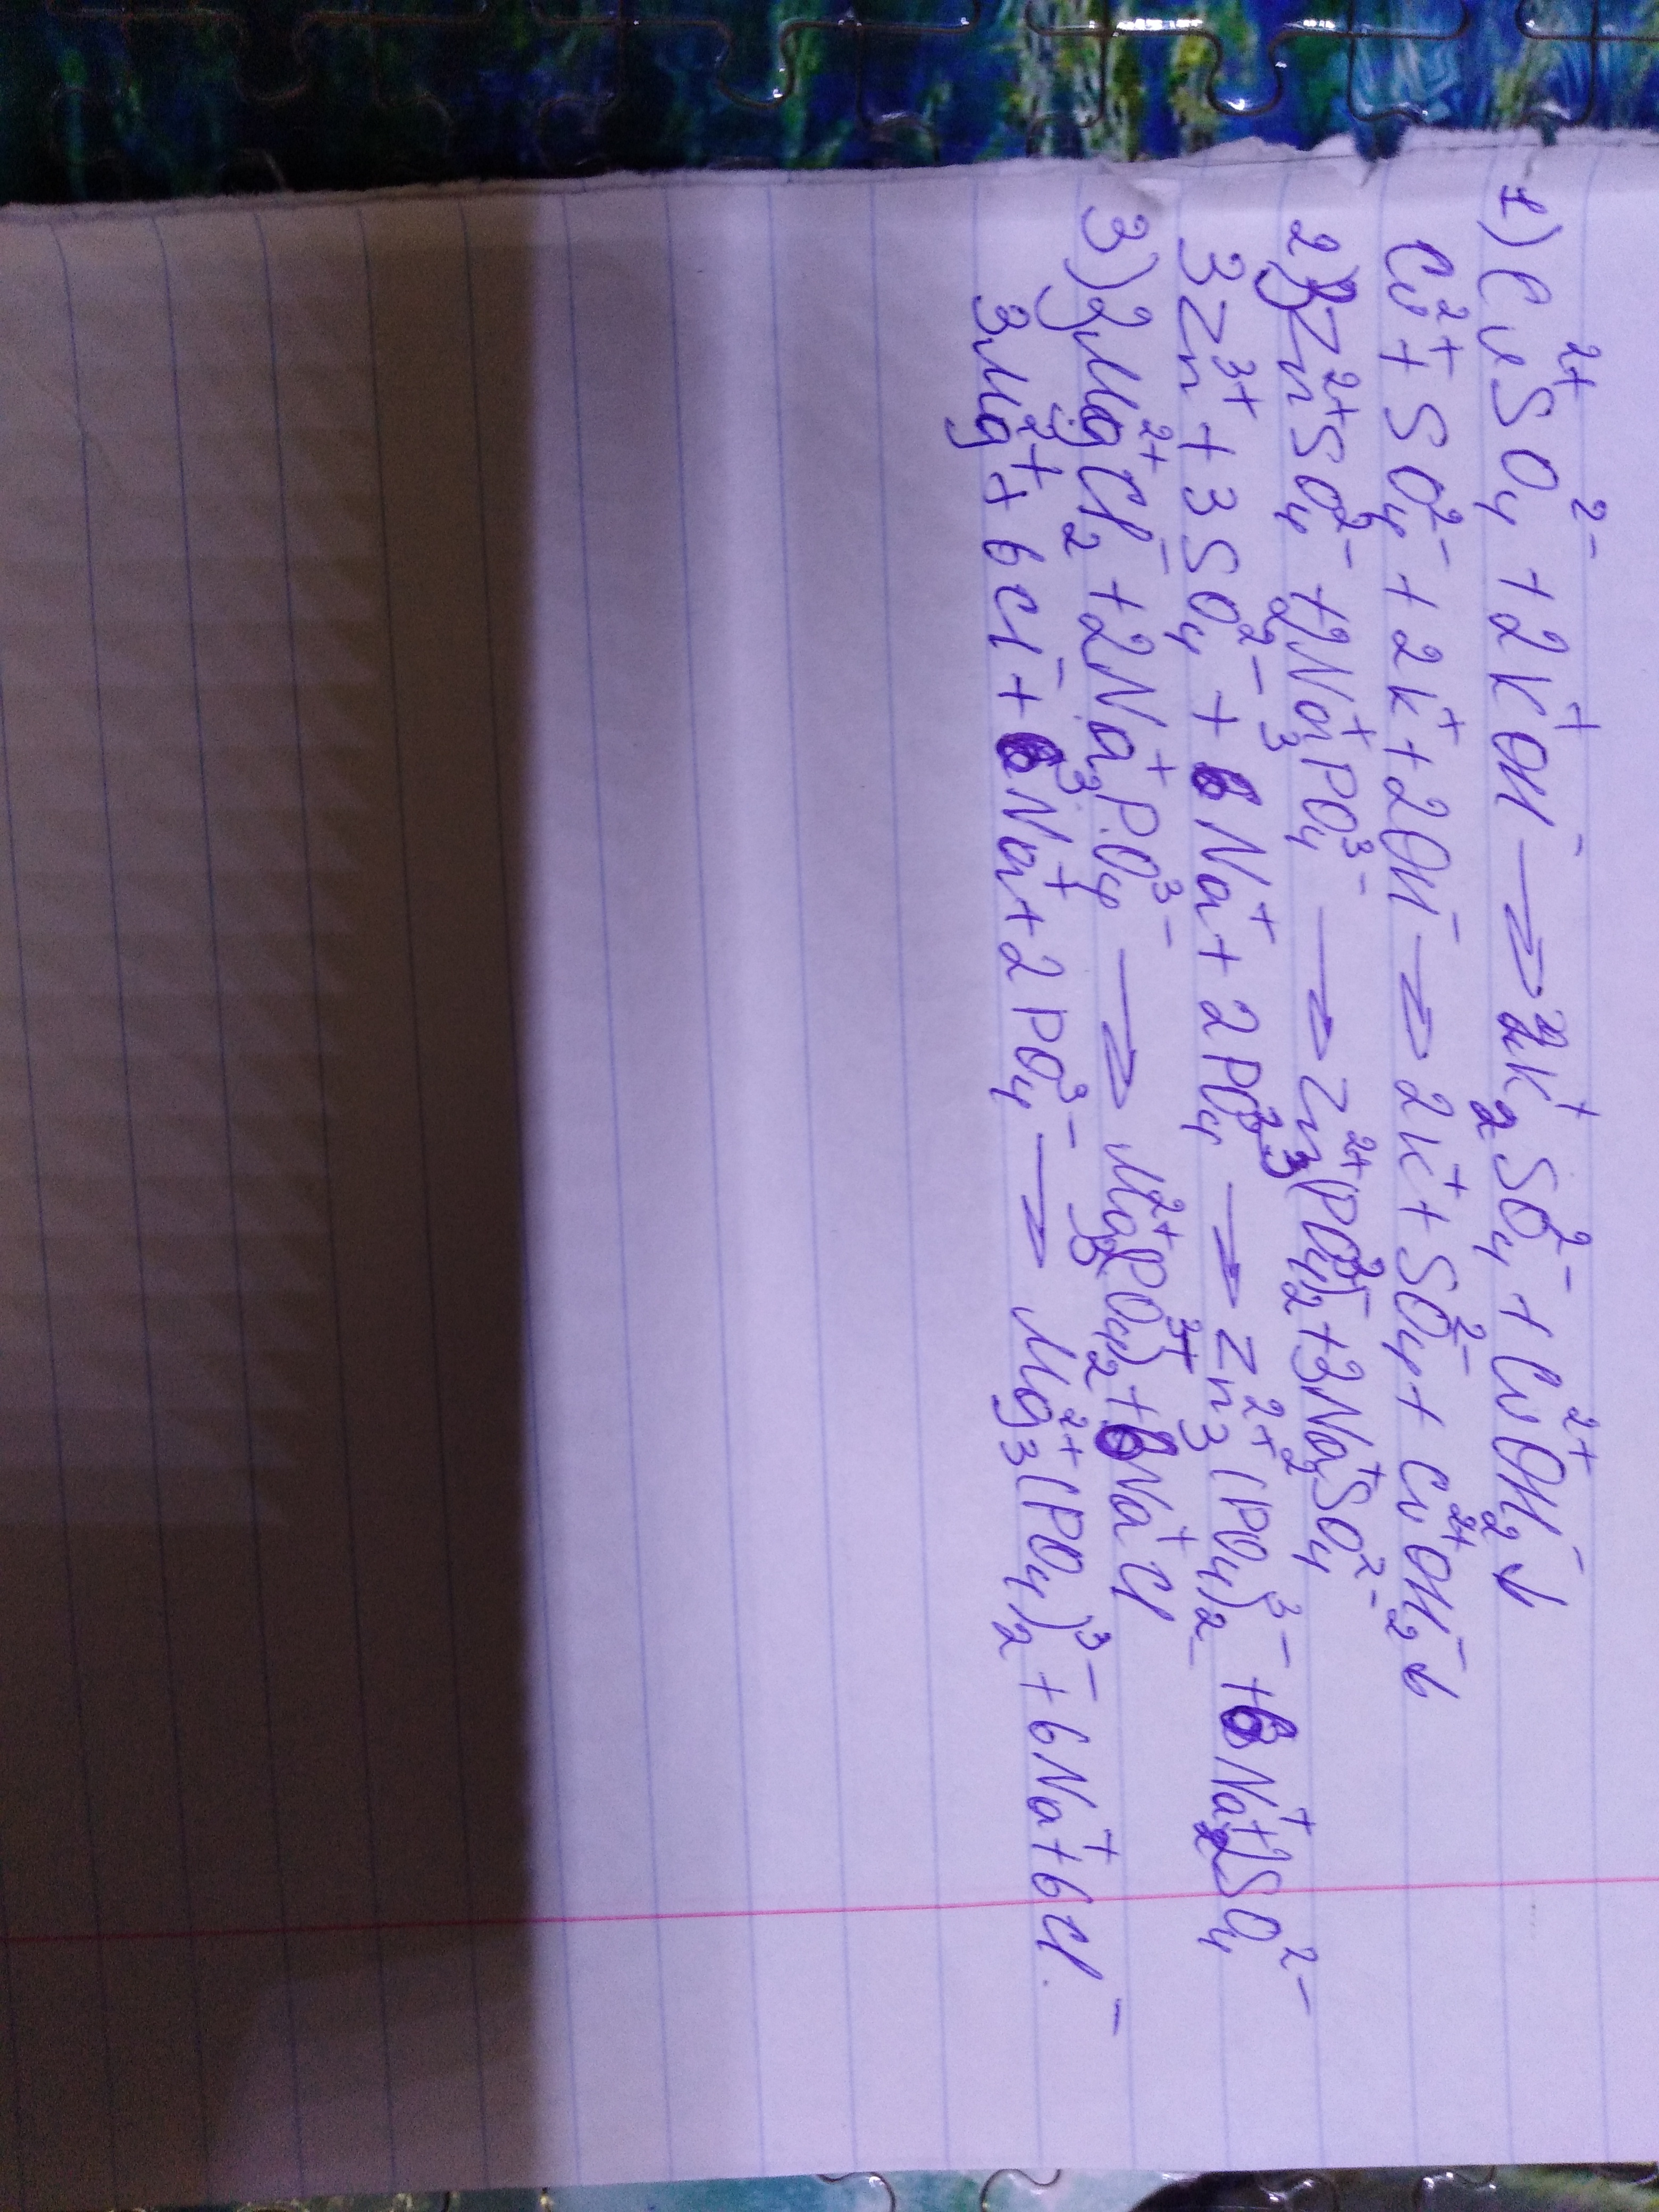 1) Cu²⁺SO₄²⁻ + 2K⁺OH⁻ → K₂⁺SO₄²⁻ + Cu²⁺OH₂⁻↓
Cu²⁺ + SO₄²⁻ + 2K⁺ + 2OH⁻ → 2K⁺ + SO₄²⁻ + Cu²⁺OH₂⁻↓
2) 3Zn²⁺SO₄²⁻ + 2Na₃⁺PO₄³⁻ → Zn₃²⁺(PO₄)₂³⁻ + 3Na₂⁺SO₄²⁻
3Zn³⁺ + 3SO₄²⁻ + 6Na⁺ + 2PO₄³⁻ → Zn₃²⁺(PO₄)₂³⁻ + 6Na⁺ + SO₄²⁻
3) 3Mg²⁺Cl₂⁻ + 2Na₃⁺PO₄³⁻ → Mg₃²⁺(PO₄)₂³⁻ + 6Na⁺Cl⁻
3Mg²⁺ + 6Cl⁻ + 6Na⁺ + 2PO₄³⁻ → Mg₃²⁺(PO₄)₂³⁻ + 6Na⁺ + 6Cl⁻